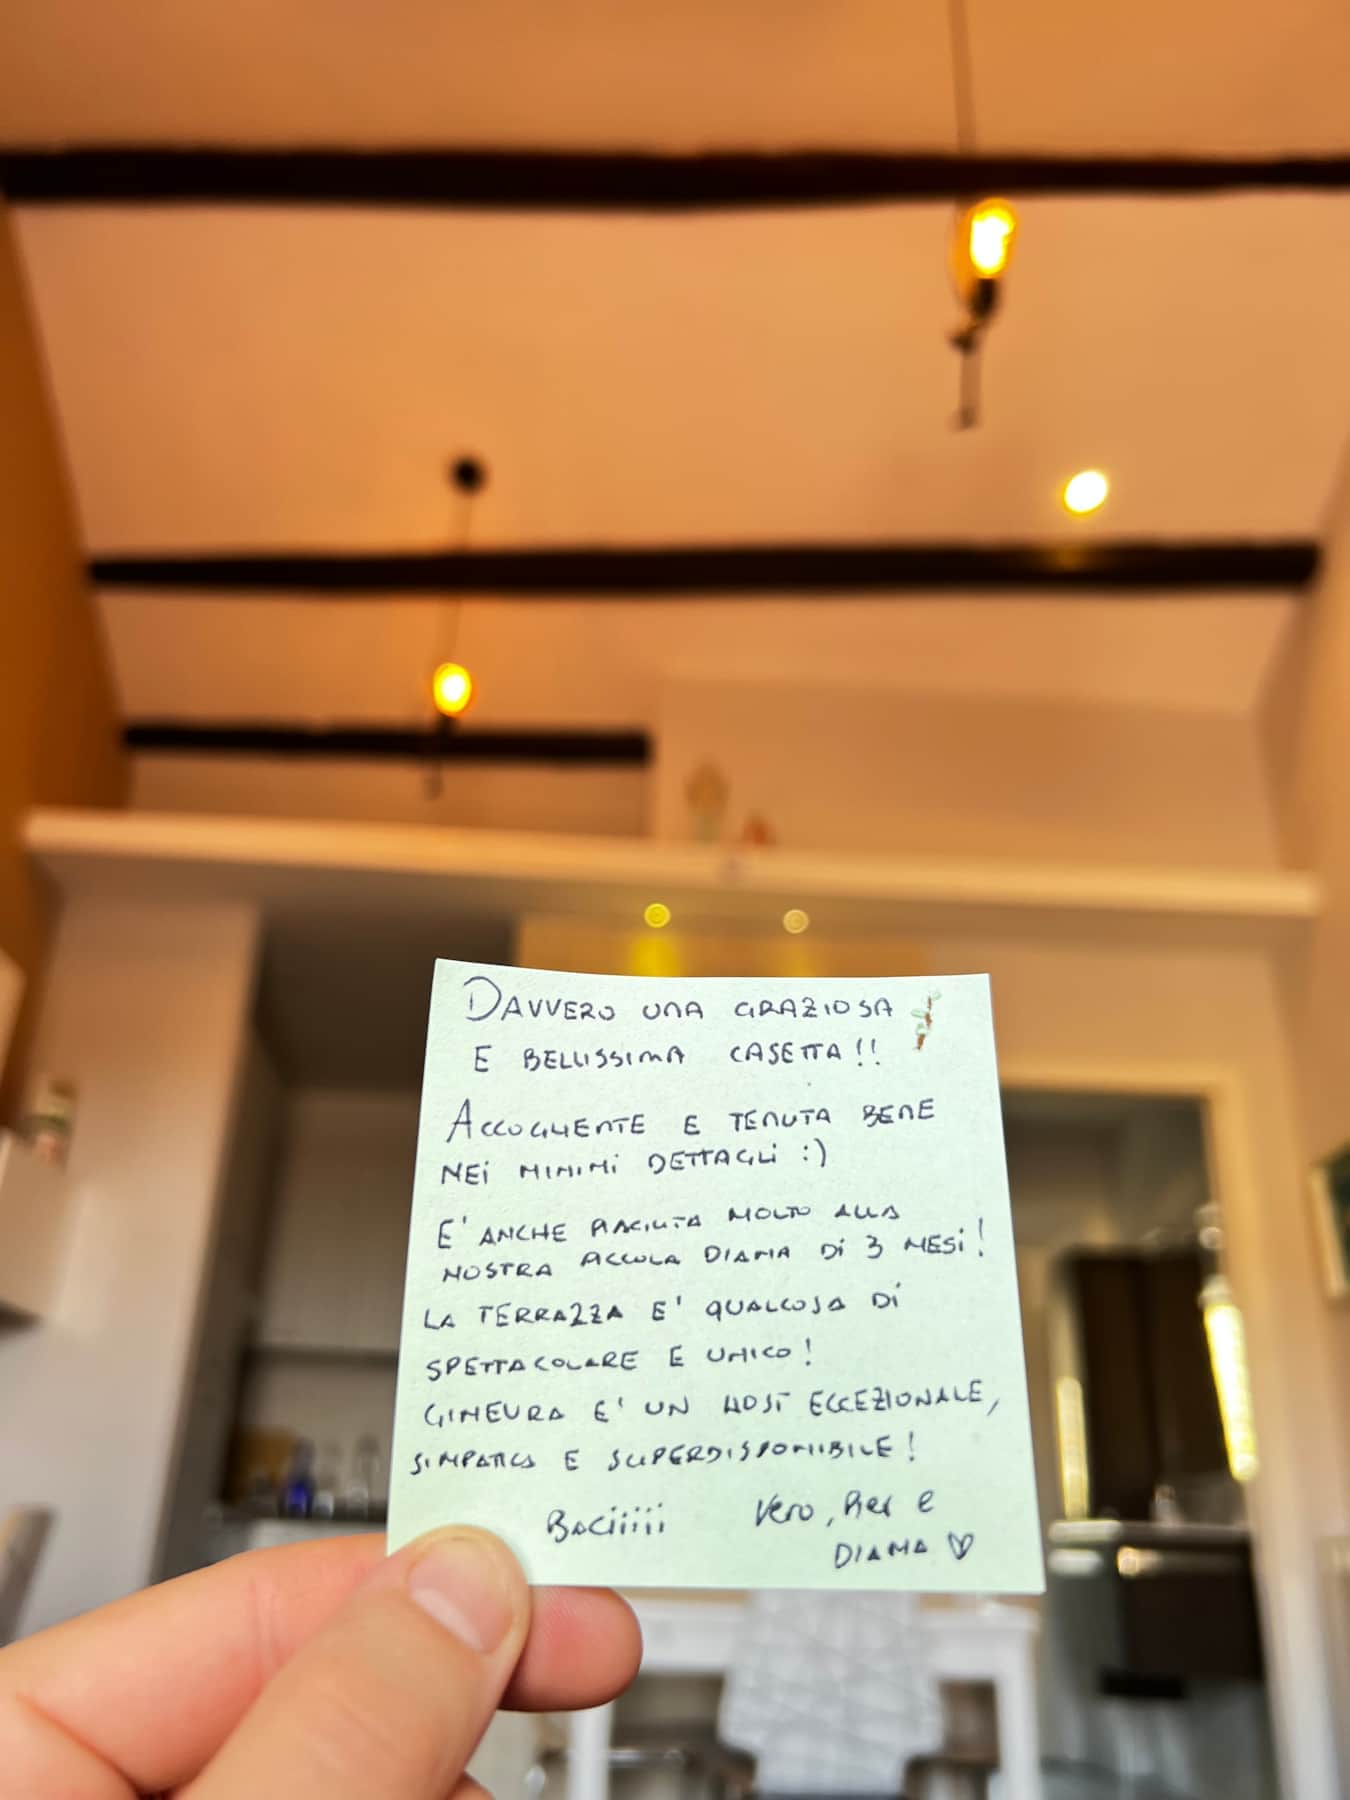 DAVVERO UNA GRAZIOSA
E BELLISSIMA CASETTA!!
ACCOGLIENTE E TENUTA BENE
NEI MINIMI DETTAGLI :)
E' ANCHE PIACIUTA MOLTO ALLA
NOSTRA DIANA DI 3 MESI!
LA TERRAZZA E' QUALCOSA DI
SPETTACOLARE E UNICO!
GINEVRA E' UN HOST ECCEZIONALE,
SIMPATICA E SUPERDISPONIBILE!
Baciiiii Vero, e
DIANA ♡